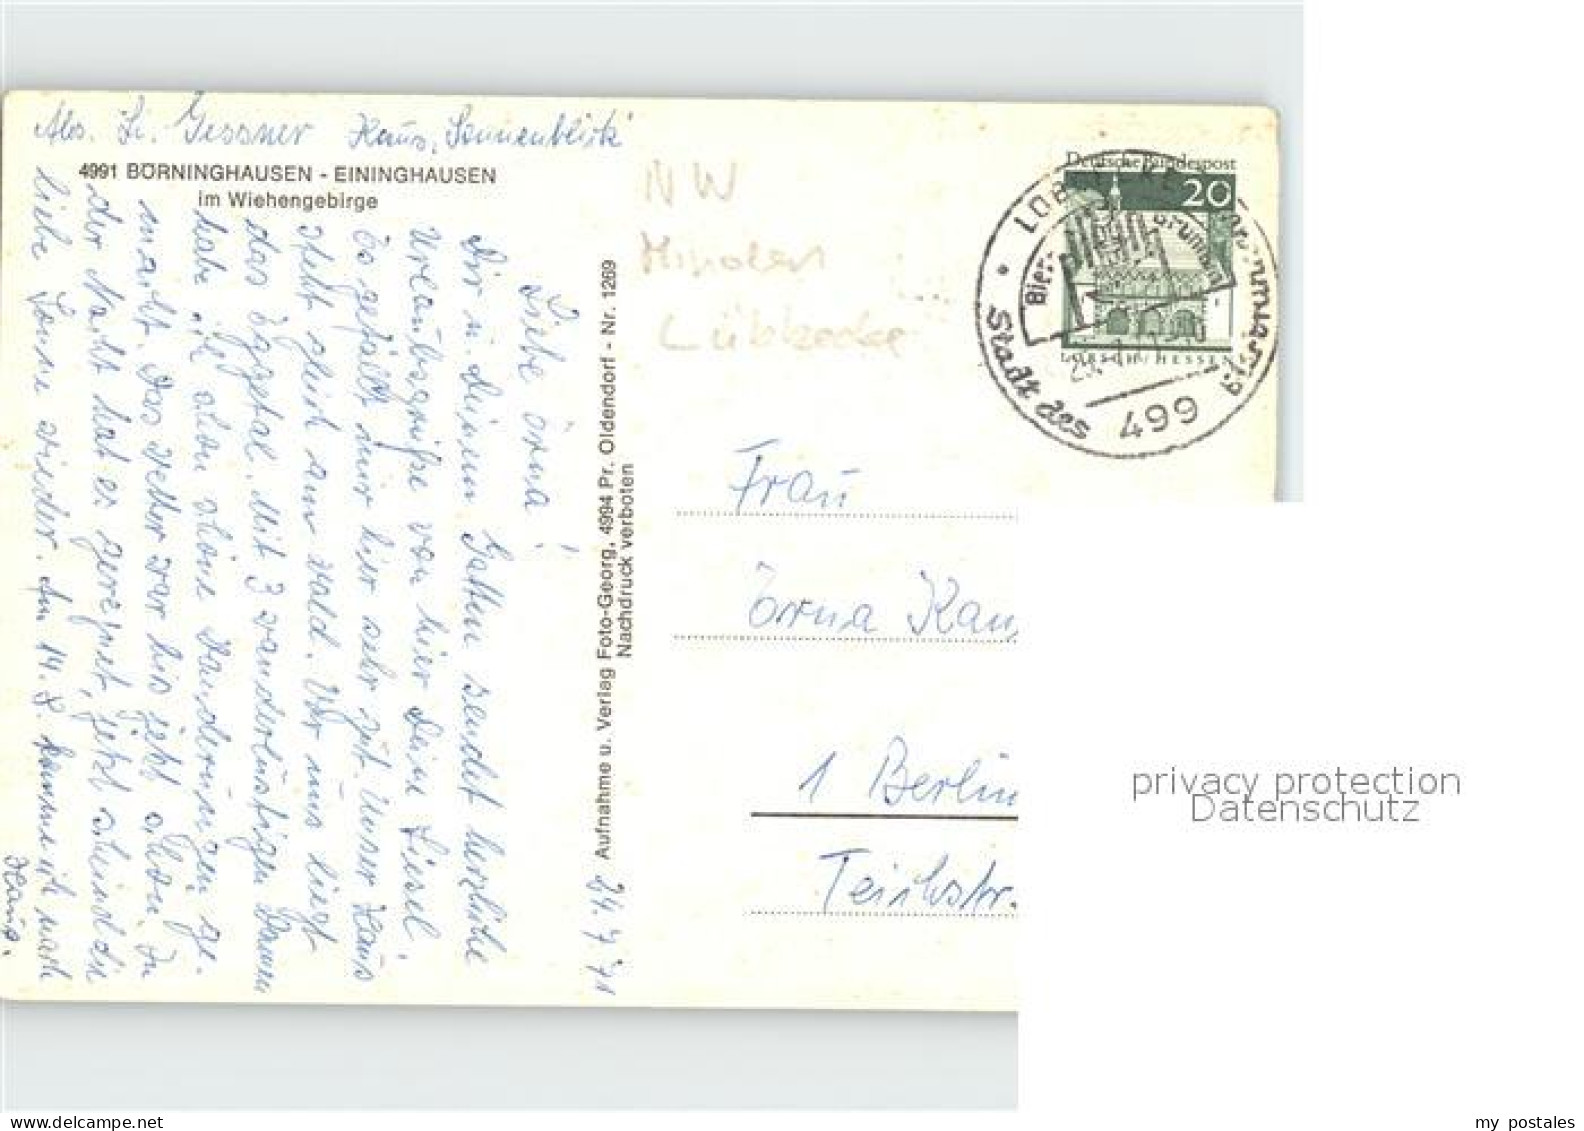 Abs. Li. Gessner Haus „Sonnenblick“
4991 BÖRNINGHAUSEN - EININGHAUSEN
im Wiehengebirge
24. 7 71
Liebe Erna!
Dir u. Deinem Gatten sendet herzliche
Urlaubsgrüße von hier Deine Liesel.
Es gefällt mir hier sehr gut. Unser Haus
steht gleich am Wald. Vor uns liegt
das Eggetal. Mit 3 wanderlustigen Damen
habe ich schon schöne Wanderungen ge-
macht. Das Wetter war bis jetzt schön. In
der Nacht hat es geregnet, jetzt scheint die
liebe Sonne wieder. Am 14. 8. komme ich nach
Haus.
Aufnahme u. Verlag Foto-Georg, 4994 Pr. Oldendorf - Nr. 1269
Nachdruck verboten
NW
Minden
Lübbecke
Deutsche Bundespost
20
LORSCH / HESSEN
Stadt des
Bier-
brunnen
499
Frau
Erna
1 Berlin
Teichstr.
privacy protection
Datenschutz
my postales